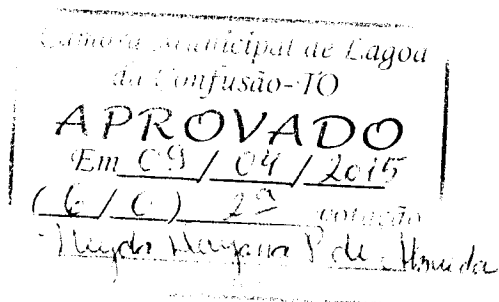 Câmara Municipal de Lagoa
da Confusão-TO
APROVADO
Em 09 / 04 / 2015
( 6 / 0 ) 2ª votação
de Almeida